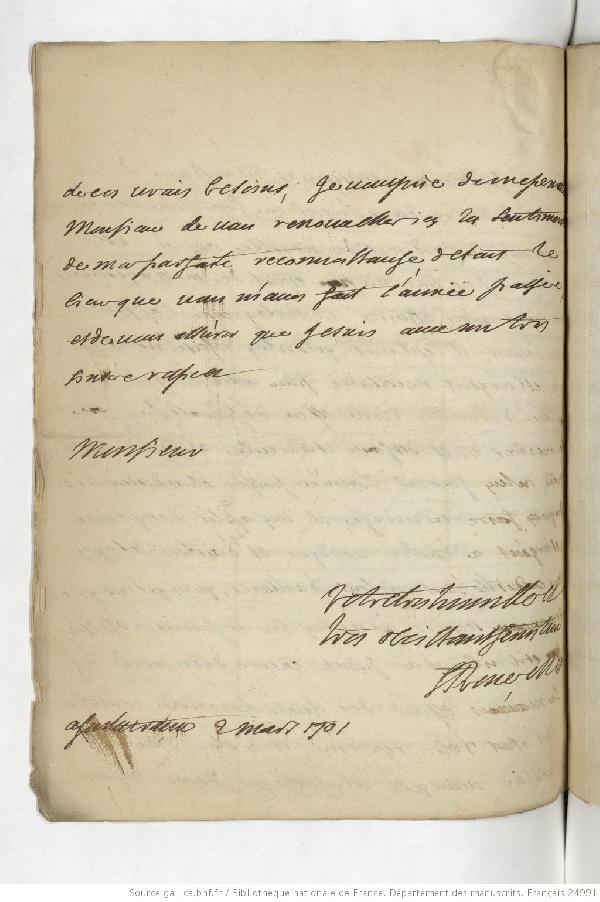 de ces vrais besoins, Je vous prie de me perme
Monsieur de vous renouveller icy les sentimen
de ma parfaite reconnaissance de tout le
bien que vous m'avez fait l'année passée,
et de vous assurer que je suis avec un tres
sincere respect
Monsieur
Votre tres humble et
tres obeissant serviteur
2 mars 1701
Source gallica.bnf.fr / Bibliothèque nationale de France. Département des manuscrits. Français 24991